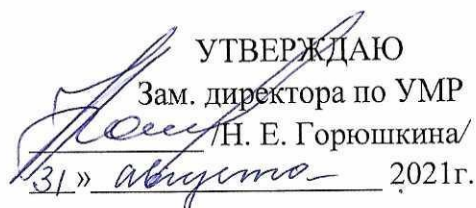 УТВЕРЖДАЮ
Зам. директора по УМР
/Н. Е. Горюшкина/
31» августа 2021г.